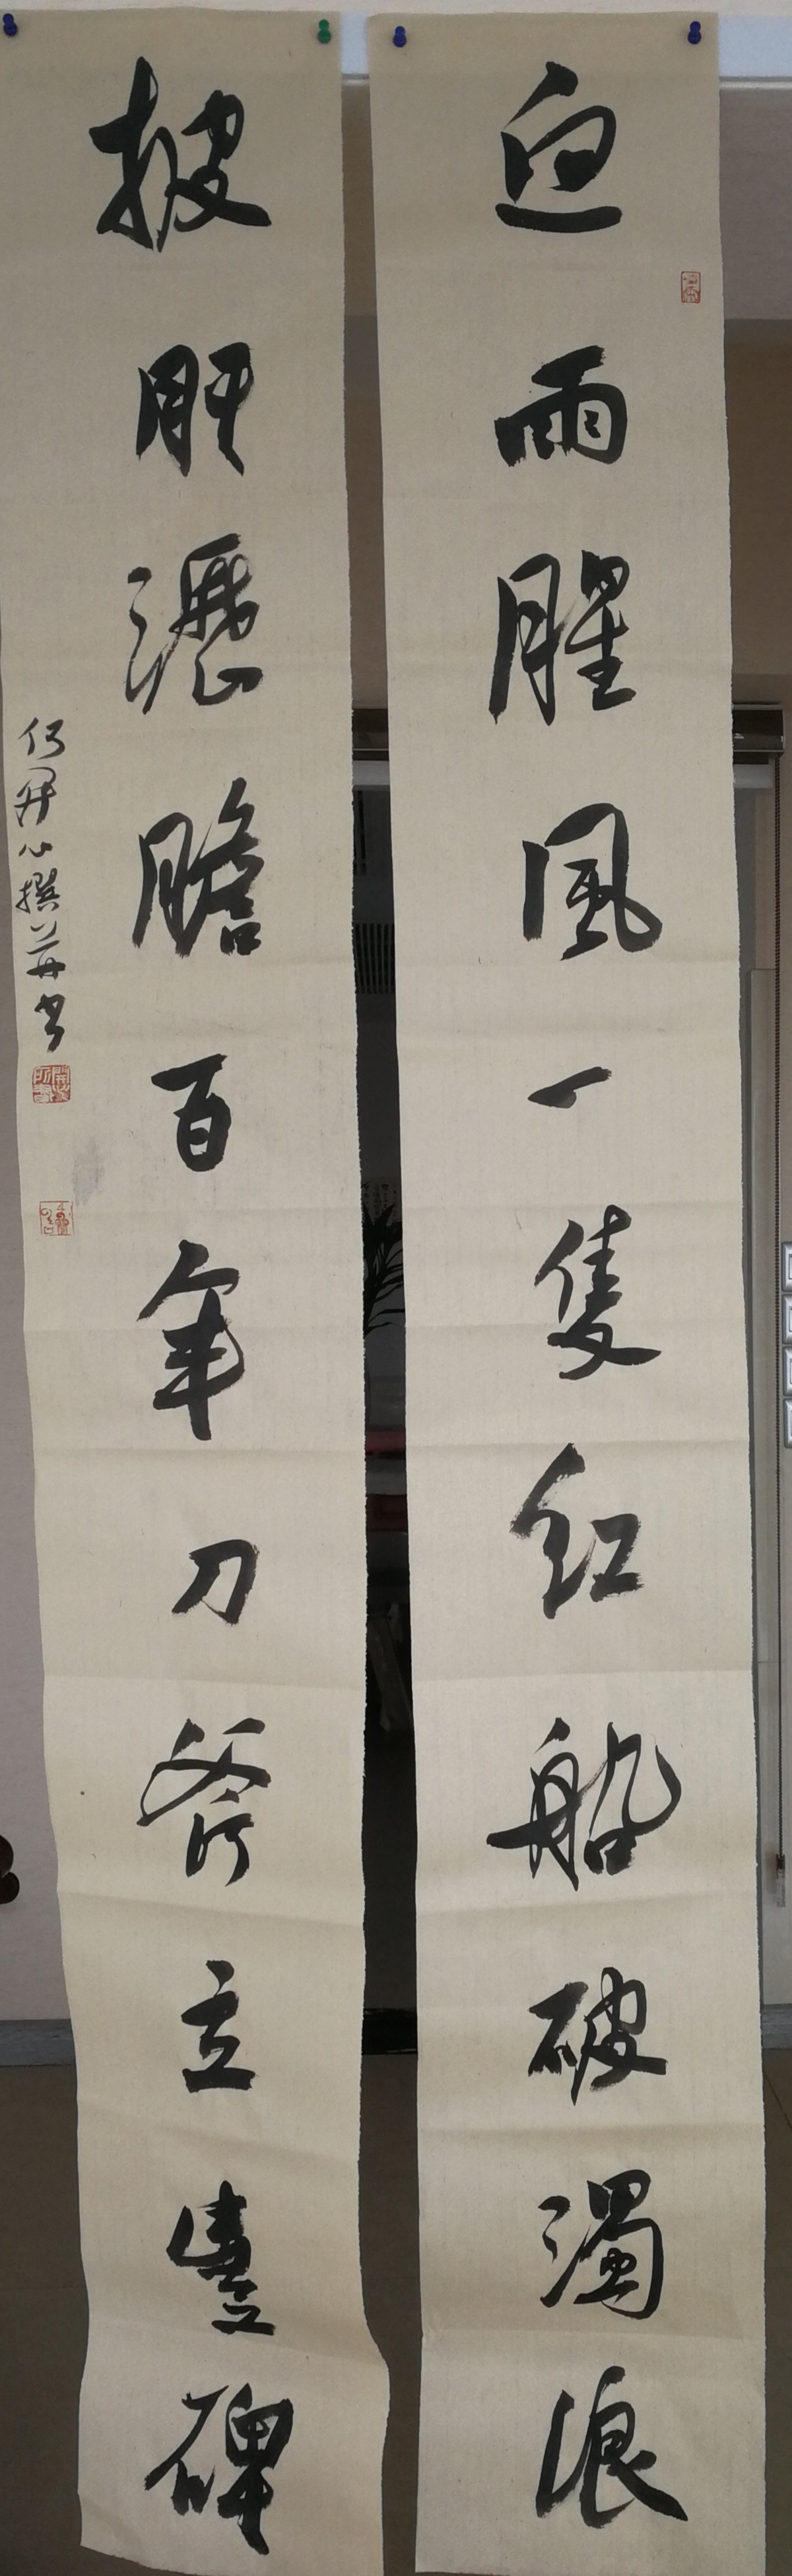 血雨腥風一隻紅船破濁浪
披肝瀝膽百年刀斧立豐碑
何開心撰并書